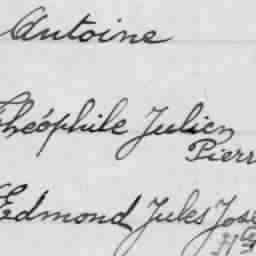 Antoine
Théophile Julien
Pierr
Edmond Jules Jose